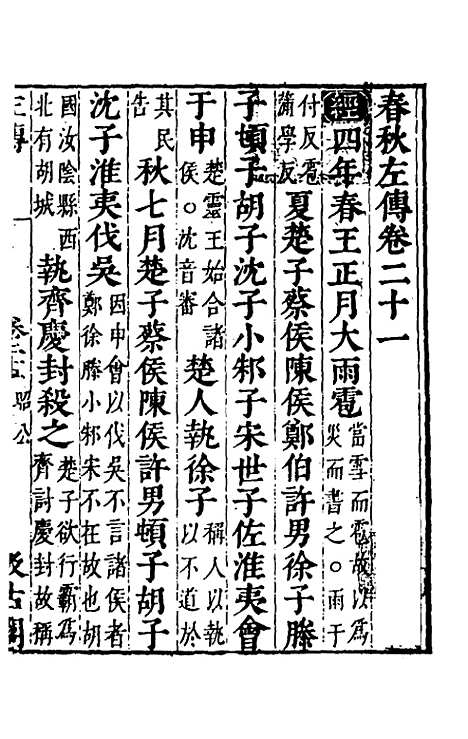 春秋左傳卷二十一
經四年春王正月大雨雹當雪而雹故以爲災而書之○雨于
付反雹蒲學反夏楚子蔡侯陳侯鄭伯許男徐子滕
子頓子胡子沈子小邾子宋世子佐淮夷會
于申楚靈王始合諸侯○沈音審楚人執徐子稱人以執以不道於
其民告秋七月楚子蔡侯陳侯許男頓子胡子
沈子淮夷伐吳因申會以伐吳不言諸侯者鄭徐滕小邾宋不在故也胡
國汝陰縣西北有胡城執齊慶封殺之楚子欲行霸爲齊討慶封故稱
昭公